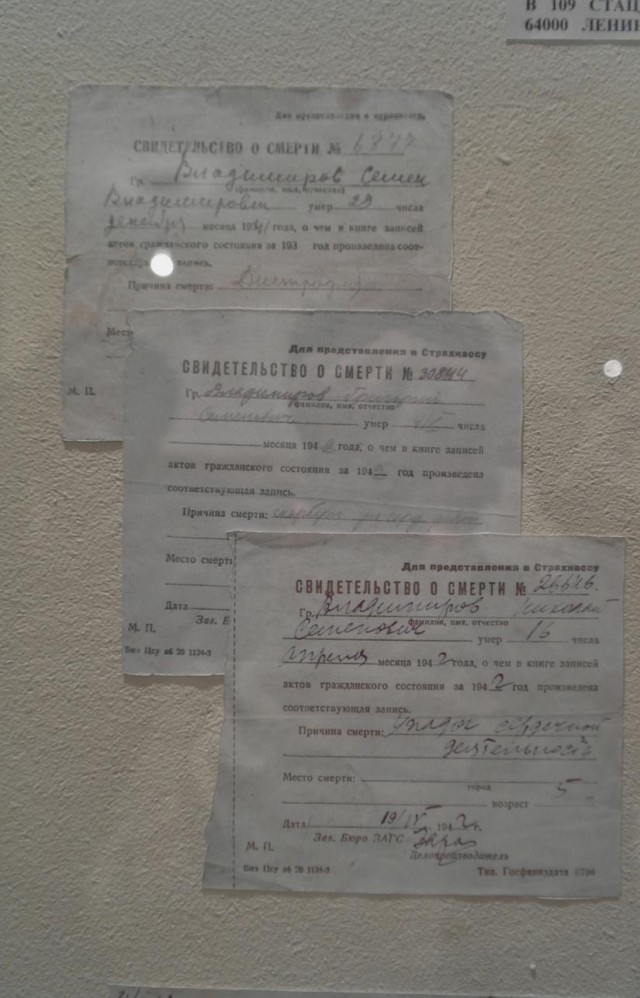 В 109 СТАЦ
64000 ЛЕНИН
Для представления в
СВИДЕТЕЛЬСТВО О СМЕРТИ № 6777
Гр. Владимиров Семен
(фамилия, имя, отчество)
Владимирович умер 29 числа
декабря месяца 1941 года, о чем в книге записей
актов гражданского состояния за 193 год произведена соот-
запись.
Причина смерти: Дистрофия
Мест
М. П.
Для представления в Страхкассу
СВИДЕТЕЛЬСТВО О СМЕРТИ № 30844
Гр. Владимиров Григорий
фамилия, имя, отчество
Семенович умер числа
месяца 1942 года, о чем в книге записей
актов гражданского состояния за 1942 год произведена
соответствующая запись.
Причина смерти:
Место смерти
Дата
Зав. Б
М. П.
Биз Цсу аб 20 1134-3
Для представления в Страхкассу
СВИДЕТЕЛЬСТВО О СМЕРТИ № 26646.
Гр. Владимиров Николай
фамилия, имя, отчество
Семенович умер 16 числа
апреля месяца 1942 года, о чем в книге записей
актов гражданского состояния за 1942 год произведена
соответствующая запись.
Причина смерти: Упадок сердечной
деятельности
Место смерти:
город
возраст 5
Дата 19/IV 1942 г.
Зав. Бюро ЗАГС
М. П.
Делопроизводитель
Биз Цсу аб 20 1134-3 Тип. Госфиниздата